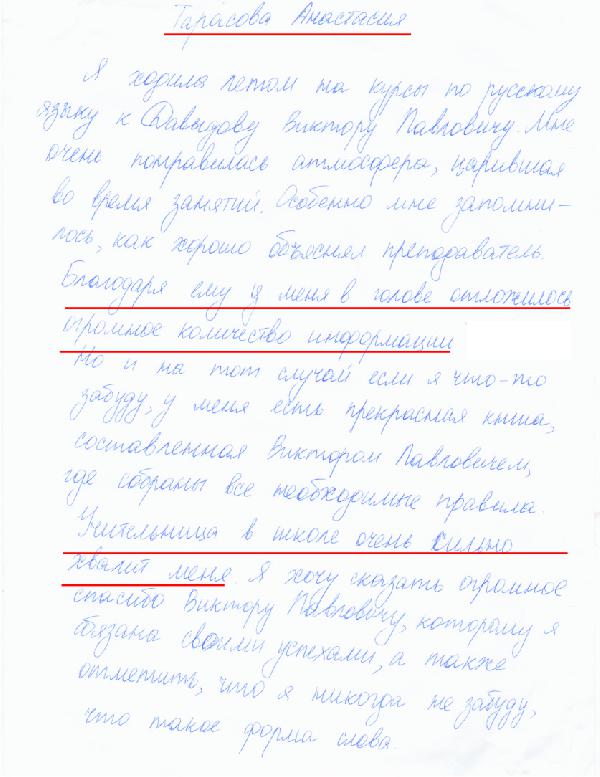 Тарасова Анастасия
Я ходила летом на курсы по русскому
языку к Давыдову Виктору Павловичу. Мне
очень понравилась атмосфера, царившая
во время занятий. Особенно мне запомни-
лось, как хорошо объяснял преподаватель.
Благодаря ему у меня в голове отложилось
огромное количество информации
Но и на тот случай если я что-то
забуду, у меня есть прекрасная книга,
составленная Виктором Павловичем,
где собраны все необходимые правила.
Учительница в школе очень сильно
хвалит меня Я хочу сказать огромное
спасибо Виктору Павловичу, которому я
обязана своими успехами, а также
отметить, что я никогда не забуду,
что такое форма слова.